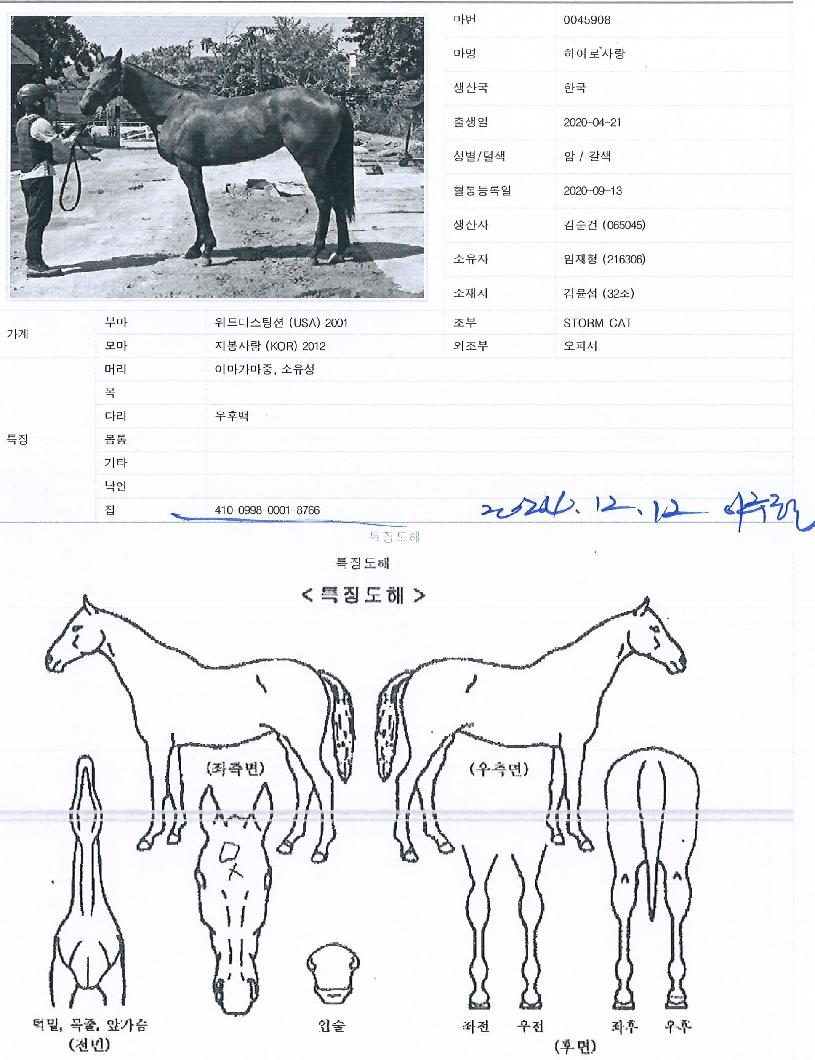 마번 0045908
마명 히어로사랑
생산국 한국
출생일 2020-04-21
성별/털색 암 / 갈색
혈통등록일 2020-09-13
생산자 김순건 (065045)
소유자 임재형 (216306)
소재지 김윤섭 (32조)
가계
부마 위드디스팅션 (USA) 2001 조부 STORM CAT
모마 지봉사랑 (KOR) 2012 외조부 오피서
특징
머리 이마가마중, 소유성
목
다리 우후백
몸통
기타
낙인
칩 410-0998-0001-8766
2024. 12. 12
특징도해
특징도해
< 특징도해 >
(좌측면) (우측면)
턱밑, 목줄, 앞가슴 입술 좌전 우전 좌후 우후
(전면) (후면)